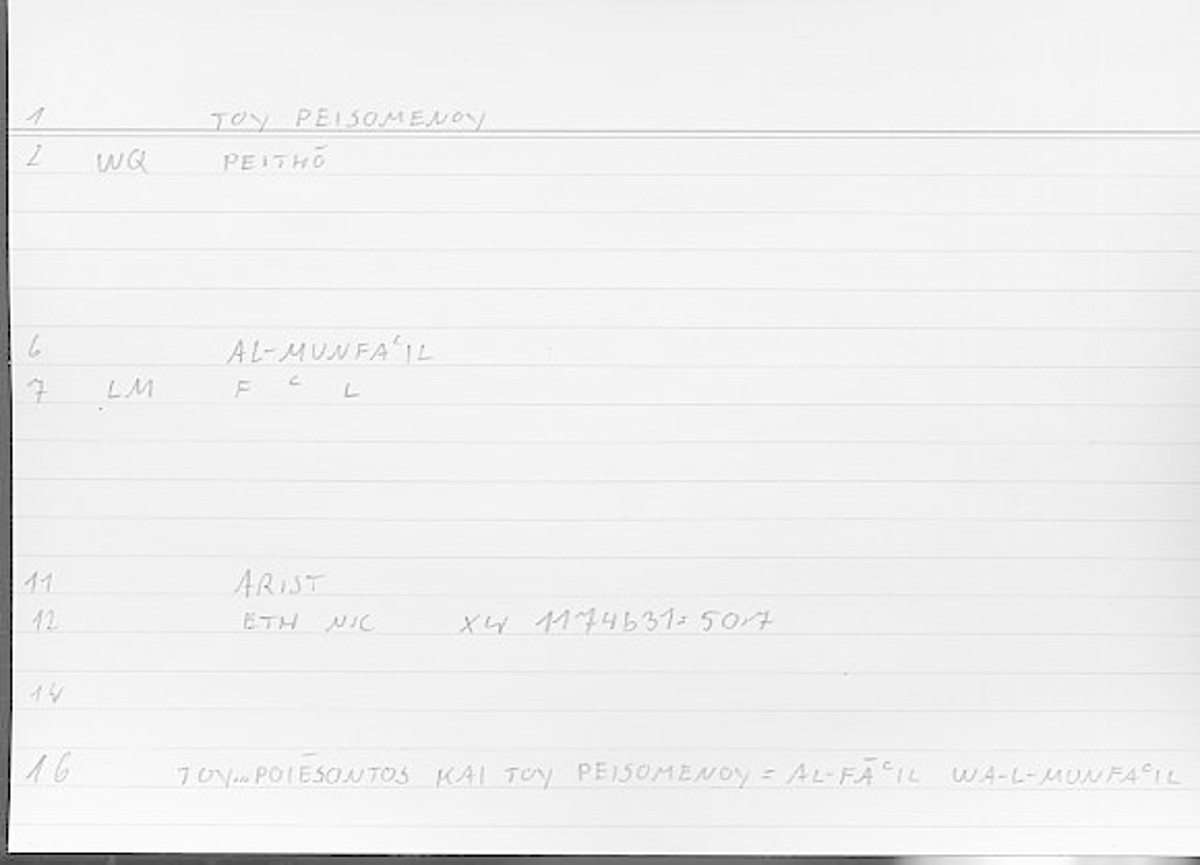 1 TOY PEISOMENOY
2 WQ PEITHŌ
6 AL-MUNFAᶜIL
7 LM F ᶜ L
11 ARIST
12 ETH NIC X4 1174b31= 50,7
14
16 TOY...POIĒSONTOS KAI TOY PEISOMENOY = AL-FĀᶜIL WA-L-MUNFAᶜIL